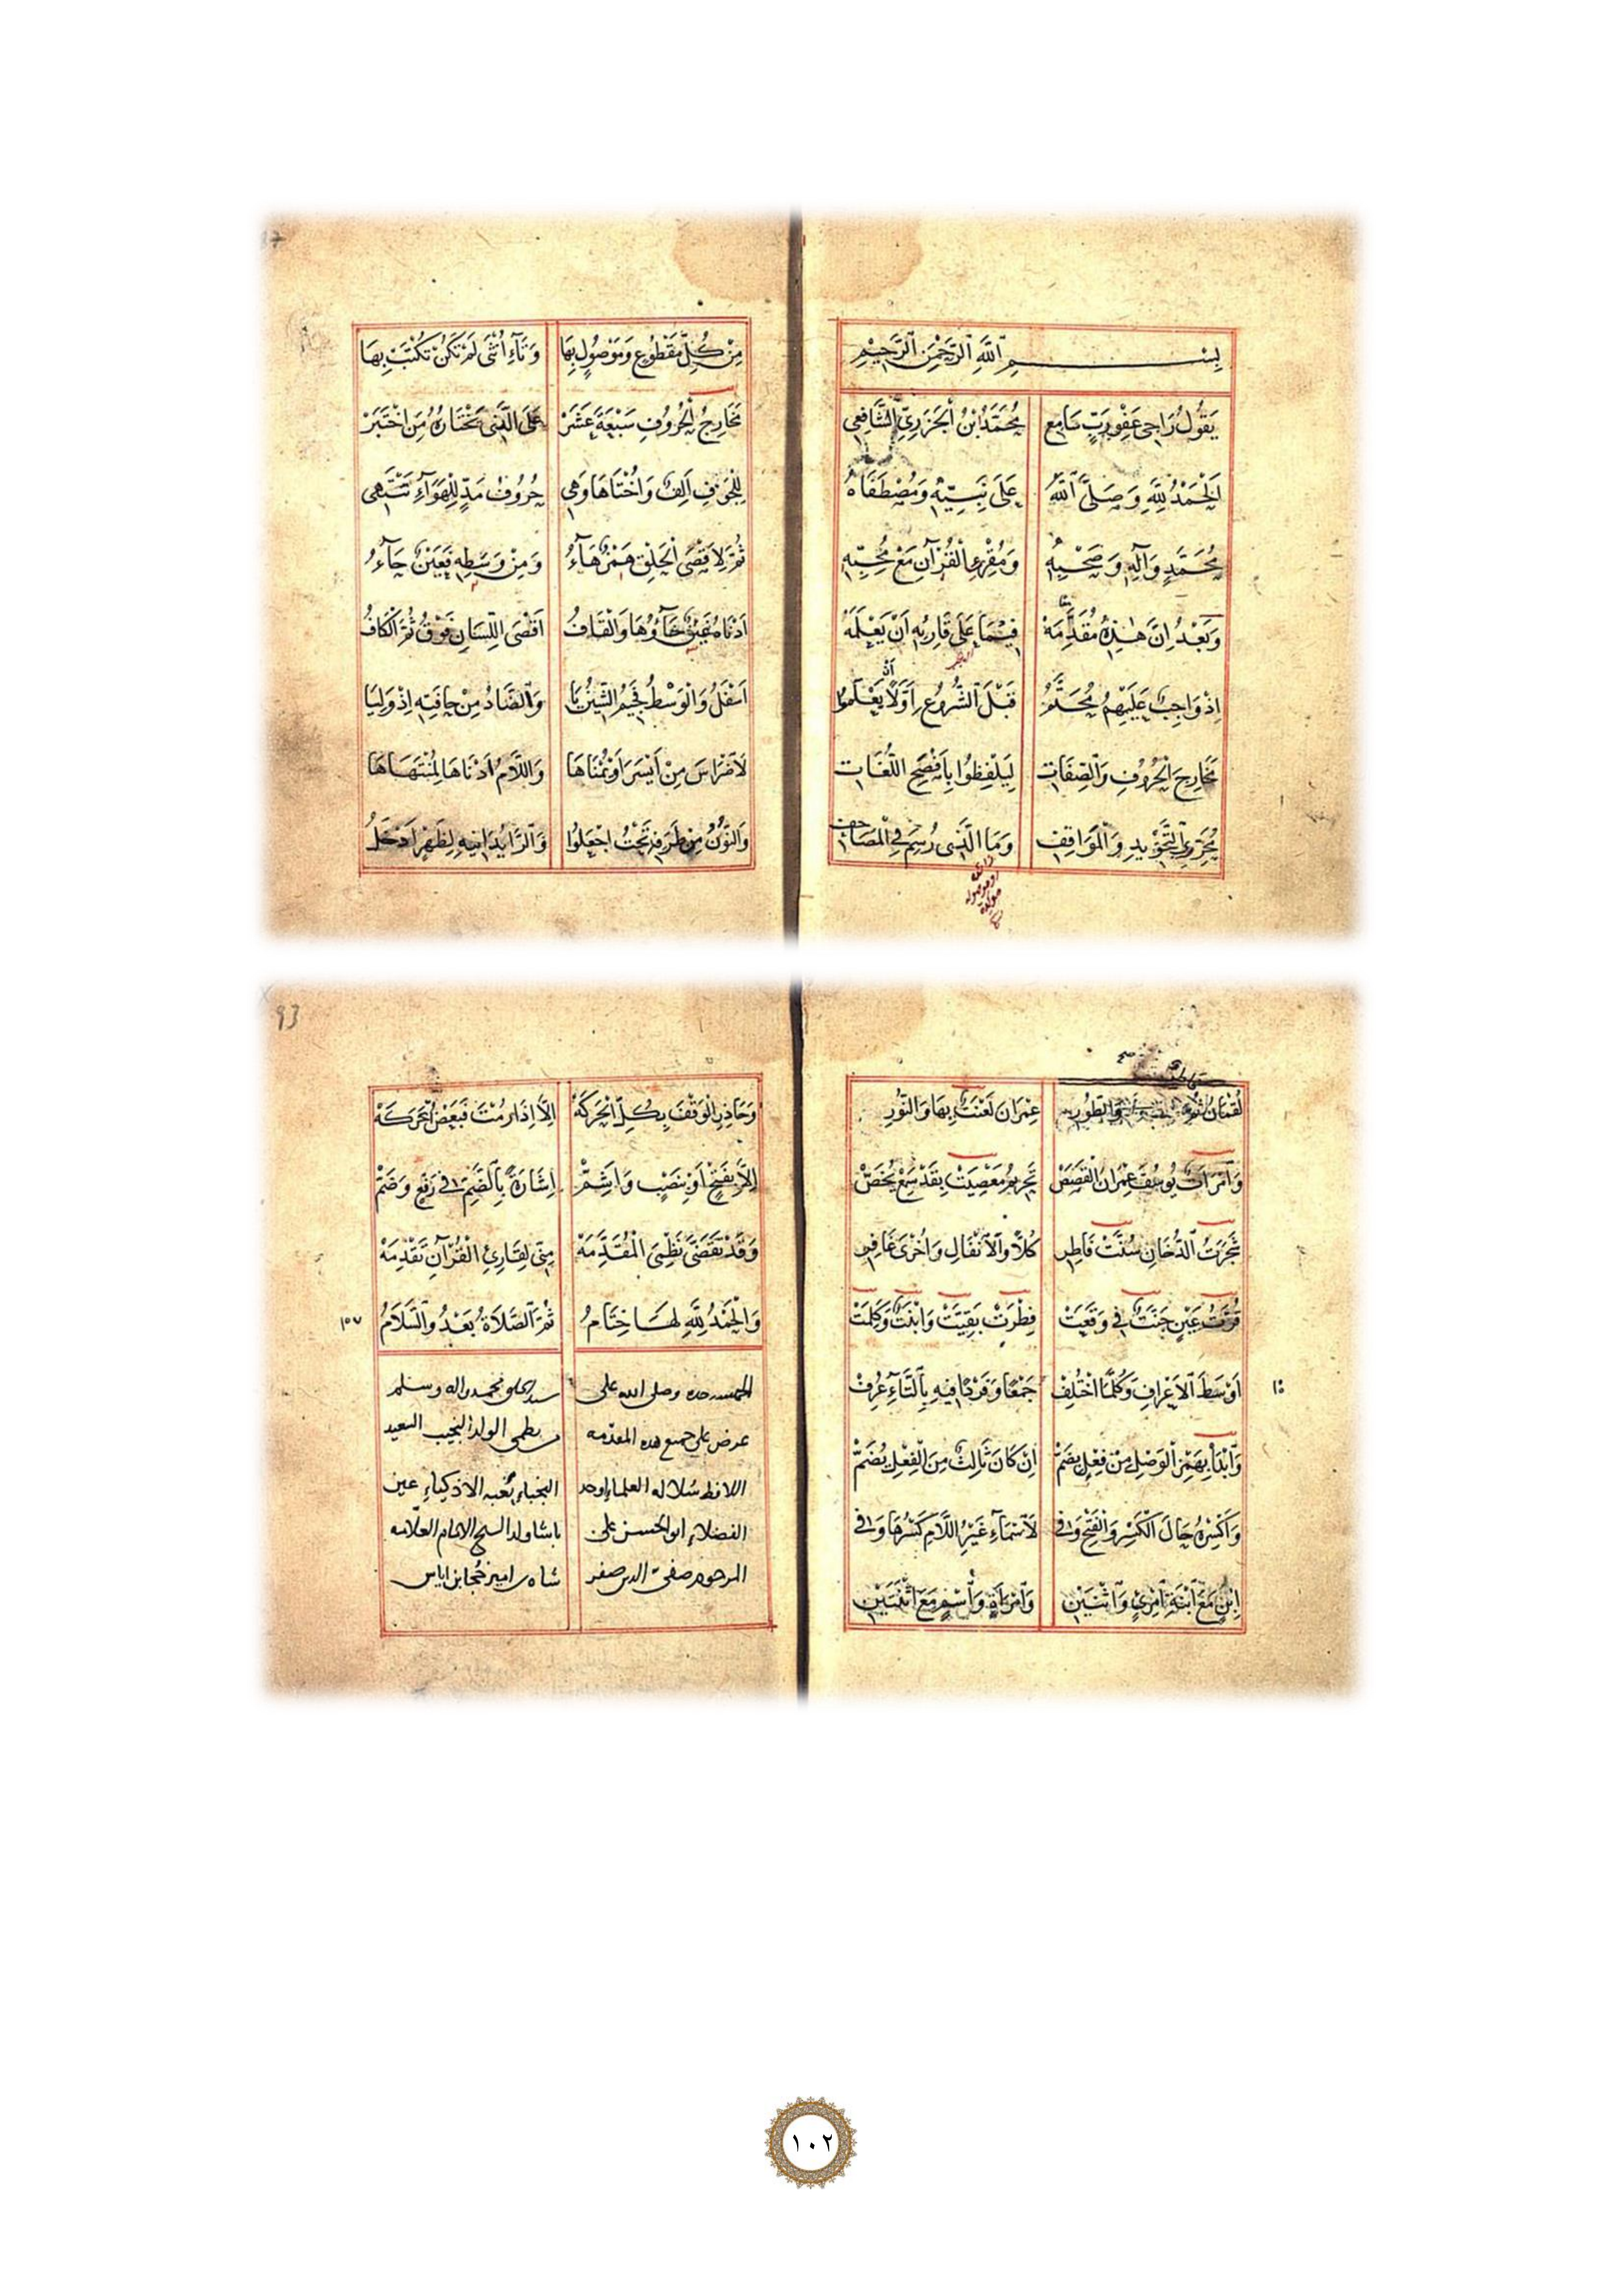 بِسْمِ ٱللَّهِ ٱلرَّحْمٰنِ ٱلرَّحِيْمِ
يَقُولُ رَاجِى عَفْوِ رَبٍّ سَامِعِ مُحَمَّدُ ابْنُ ٱلْجَزَرِيِّ الشَّافِعِى
اَلْحَمْدُ لِلَّهِ وَصَلَّى ٱللَّهُ عَلَى نَبِيِّهِ وَمُصْطَفَاهُ
مُحَمَّدٍ وَآلِهِ وَصَحْبِهِ وَمُقْرِئِ الْقُرْآنِ مَعْ مُحِبِّهِ
وَبَعْدُ اِنَّ هٰذِهِ مُقَدِّمَهْ فِيْمَا عَلَى قَارِيِهِ اَنْ يَعْلَمَهْ
اِذْ وَاجِبٌ عَلَيْهِمُ مُحَتَّمُ قَبْلَ ٱلشُّرُوعِ اَوَّلًا اَنْ يَعْلَمُوا
مَخَارِجَ الْحُرُوفِ وَٱلصِّفَاتِ لِيَلْفِظُوا بِاَفْصَحِ اللُّغَاتِ
مُحَرِّرِي التَّجْوِيدِ وَالْمَوَاقِفِ وَمَا الَّذِى رُسِمَ فِي الْمَصَاحِفِ
مِنْ كُلِّ مَقْطُوعٍ وَمَوْصُولٍ بِهَا وَتَآءِ اُنْثَى لَمْ تَكُنْ تُكْتَبْ بِهَا
مَخَارِجُ الْحُرُوفِ سَبْعَةَ عَشَرْ عَلَى الَّذِى يَخْتَارُهُ مَنِ اخْتَبَرْ
لِلْجَوْفِ اَلِفٌ وَاُخْتَاهَا وَهِى حُرُوفُ مَدٍّ لِلْهَوَآءِ تَنْتَهِى
ثُمَّ لِاَقْصَى الْحَلْقِ هَمْزٌ هَآءُ وَمِنْ وَسَطِهِ فَعَيْنٌ حَآءُ
اَدْنَاهُ غَيْنٌ خَآؤُهَا وَالْقَافُ اَقْصَى اللِّسَانِ فَوْقُ ثُمَّ الْكَافُ
اَسْفَلُ وَالْوَسْطُ فَجِيمُ الشِّينُ يَا وَٱلضَّادُ مِنْ حَافَتِهِ اِذْ وَلِيَا
لَاضْرَاسَ مِنْ اَيْسَرَ اَوْ يُمْنَاهَا وَاللَّامُ اَدْنَاهَا لِمُنْتَهَاهَا
وَالنُّونُ مِنْ طَرَفِهِ تَحْتُ اجْعَلُوا وَالرَّا يُدَانِيهِ لِظَهْرٍ اَدْخَلُ
93
لُقْمَانُ ثُمَّ فَاطِرٌ كَٱلطُّورِ عِمْرَانَ لَعْنَتٌ بِهَا وَالنُّورِ
وَٱمْرَاَتٌ يُوسُفَ عِمْرَانَ الْقَصَصْ تَحْرِيمُ مَعْصِيَتْ بِقَدْ سَمِعْ يُخَصّْ
شَجَرَتُ ٱلدُّخَانِ سُنَّتْ فَاطِرِ كُلًّا وَالْاَنْفَالِ وَاُخْرَى غَافِرِ
قُرَّتُ عَيْنٍ جَنَّتٌ فِى وَقَعَتْ فِطْرَتْ بَقِيَّتْ وَابْنَتٌ وَكَلِمَتْ
اَوْسَطَ ٱلْاَعْرَافِ وَكُلُّ مَا اخْتُلِفْ جَمْعًا وَفَرْدًا فِيهِ بِٱلتَّآءِ عُرِفْ
وَٱبْدَأْ بِهَمْزِ ٱلْوَصْلِ مِنْ فِعْلٍ بِضَمّْ اِنْ كَانَ ثَالِثٌ مِنَ الْفِعْلِ يُضَمّْ
وَاكْسِرْهُ حَالَ ٱلْكَسْرِ وَالْفَتْحِ وَفِى لَاسْمَآءِ غَيْرِ اللَّامِ كَسْرُهَا وَفِى
اِبْنٍ مَعَ ٱبْنَةِ ٱمْرِئٍ وَٱثْنَيْنِ وَٱمْرَأَةٍ وَٱسْمٍ مَعَ ٱثْنَتَيْنِ
وَحَاذِرِ الْوَقْفَ بِكُلِّ الْحَرَكَهْ اِلَّا اِذَا رُمْتَ فَبَعْضُ الْحَرَكَهْ
اِلَّا بِفَتْحٍ اَوْ بِنَصْبٍ وَاَشِمّْ اِشَارَةً بِالضَّمِّ فِى رَفْعٍ وَضَمّْ
وَقَدْ تَقَضَّى نَظْمِىَ الْمُقَدِّمَهْ مِنِّى لِقَارِئِ الْقُرْآنِ تَقْدِمَهْ
وَالْحَمْدُ لِلَّهِ لَهَا خِتَامُ ثُمَّ الصَّلَاةُ بَعْدُ وَالسَّلَامُ
١٠٧
الحمد لله وحده وصلى الله على سيد الخلق محمد واله وسلم
عرض على جميع هذه المقدمه من نظمى الولد النجيب السعيد
اللافظ سلالة العلماء اوحد النجباء نخبه الاذكياء عين
الفضلاء ابو الحسن على باشا ولد الشيخ الامام العلامه
المرحوم صفى الدين صفر شاه امير خجا بن اياس
١٠٢